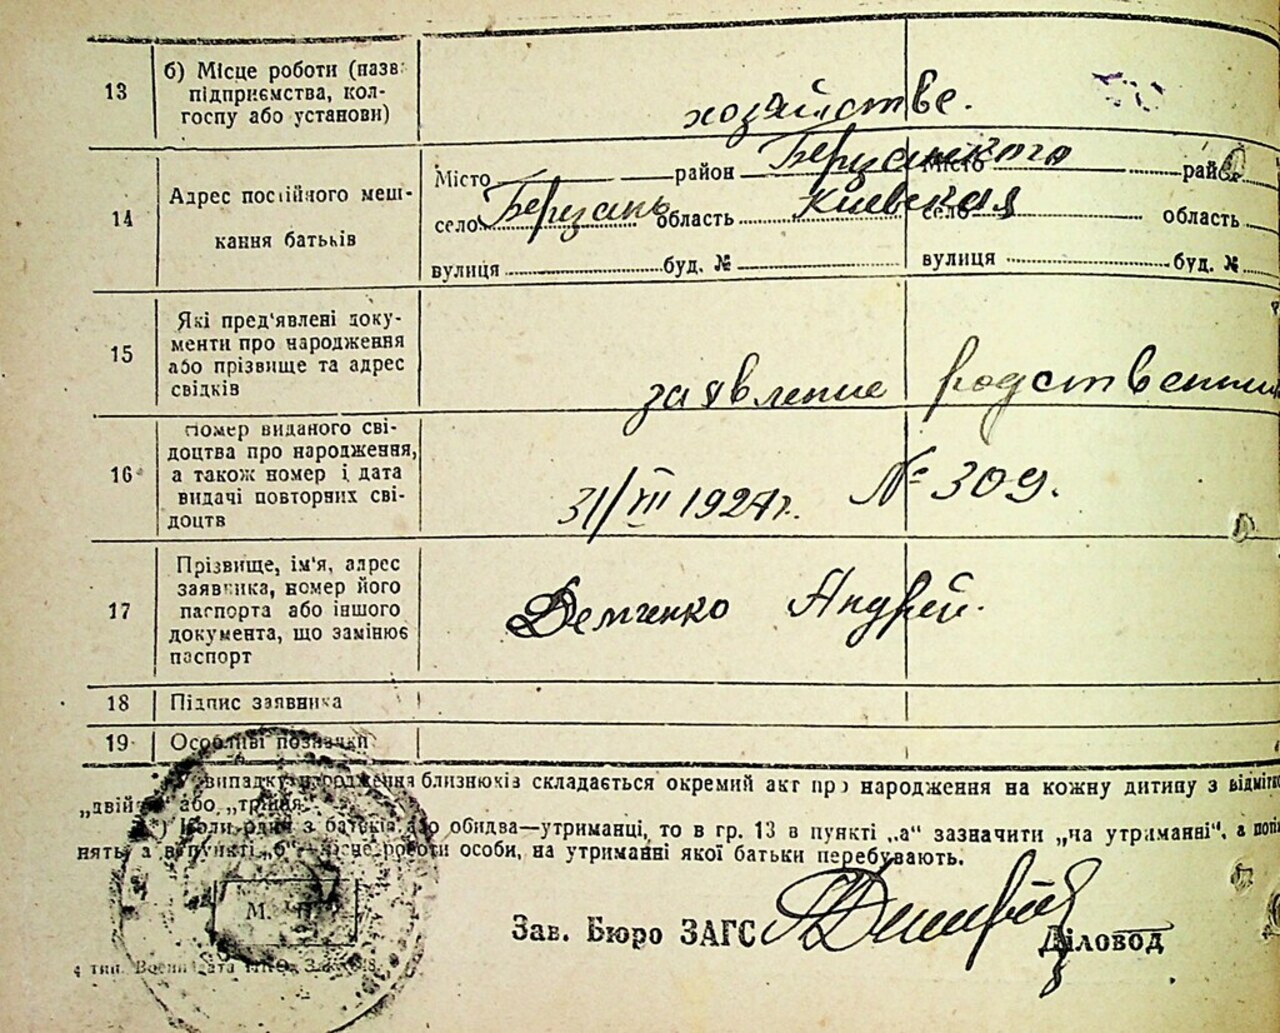 13
б) Місце роботи (назв
підприємства, кол-
госпу або установи)
хозяйстве.
14
Адрес постійного меш-
кання батьків
Місто район Березанского Місто рай
село Березань область Киевская село область
вулиця буд. № вулиця буд. №
15
Які пред'явлені доку-
менти про народження
або прізвище та адрес
свідків
заявление родственни
16
Номер виданого сві-
доцтва про народження,
а також номер і дата
видачі повторних сві-
доцтв
31/III 1924г. № 309.
17
Прізвище, ім'я, адрес
заявника, номер його
паспорта або іншого
документа, що замінює
паспорт
Демченко Андрей.
18 Підпис заявника
19 Особливі позначки
У випадку народження близнюків складається окремий акт про народження на кожну дитину з відмітко
„двійня" або „трійня".
*) Коли один з батьків або обидва—утриманці, то в гр. 13 в пункті „а" зазначити „на утриманні", а
нять, а в пункті „б"—місце роботи особи, на утриманні якої батьки перебувають.
М. П.
Зав. Бюро ЗАГС Діловод